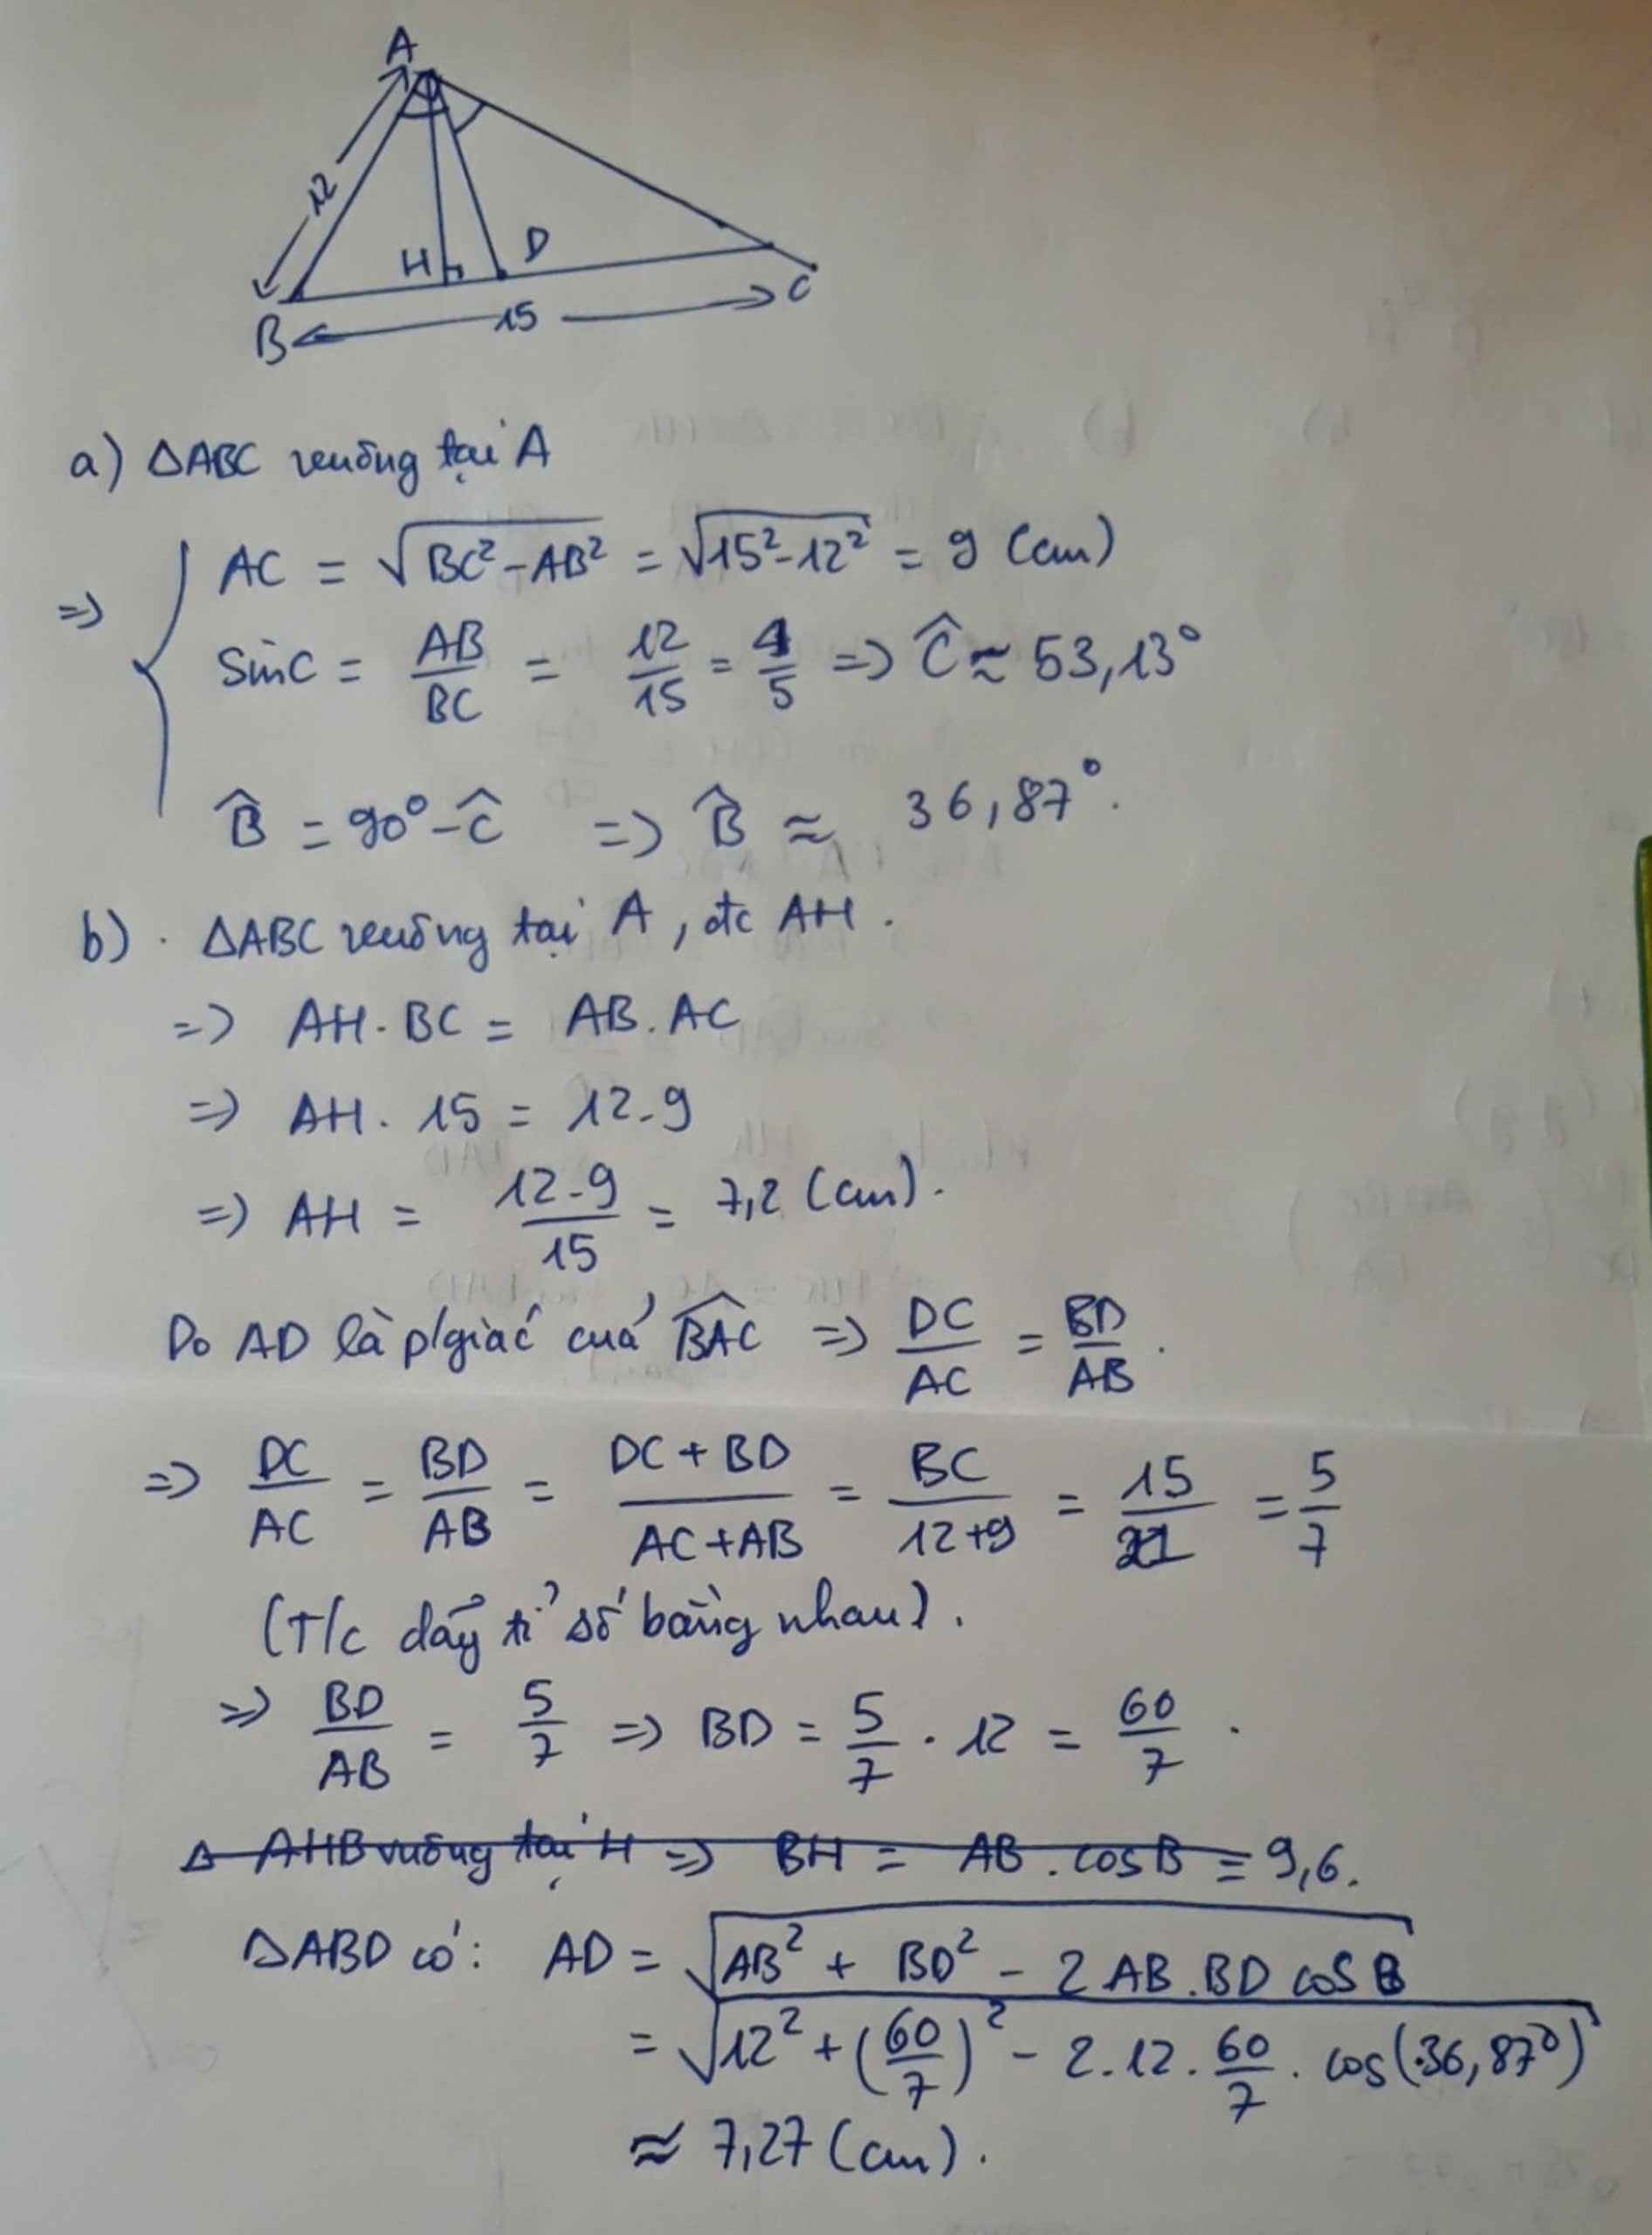 A
12
H
D
B
15
C
a) ΔABC vuông tại A
=> { AC = √(BC² - AB²) = √(15² - 12²) = 9 (cm)
sinC = AB/BC = 12/15 = 4/5 => Ĉ ≈ 53,13°
B̂ = 90° - Ĉ => B̂ ≈ 36,87°.
b) . ΔABC vuông tại A, đc AH.
=> AH . BC = AB . AC
=> AH . 15 = 12 . 9
=> AH = 12 . 9/15 = 7,2 (cm).
Do AD là p/giác của BAC^ => DC/AC = BD/AB.
=> DC/AC = BD/AB = DC + BD/AC + AB = BC/12 + 9 = 15/21 = 5/7
(T/c dãy tỉ số bằng nhau).
=> BD/AB = 5/7 => BD = 5/7 . 12 = 60/7.
Δ AHB vuông tại H => BH = AB . cosB = 9,6.
ΔABD có: AD = √(AB² + BD² - 2AB.BD cosB)
= √(12² + (60/7)² - 2.12.60/7 . cos(36,87°))
≈ 7,27 (cm).